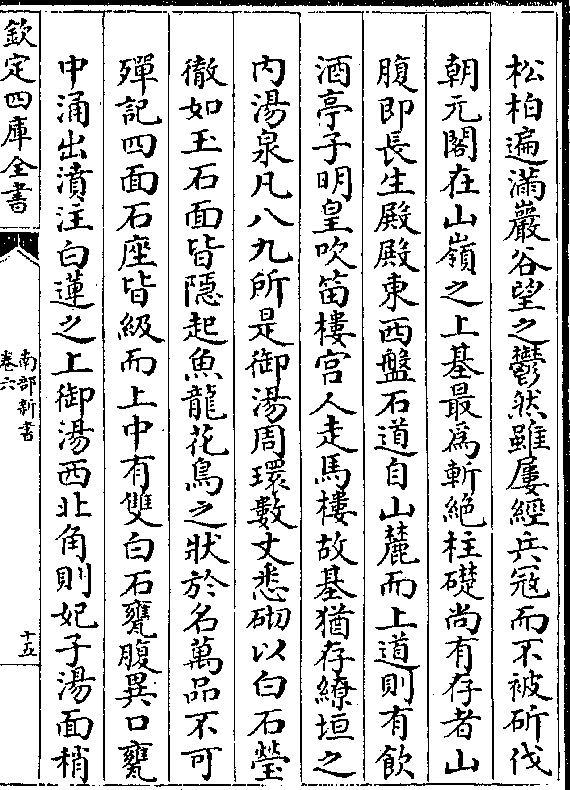 松柏遍滿巖谷望之鬱然雖屢經兵寇而不被斫伐
朝元閣在山嶺之上基最爲斬絶柱礎尚有存者山
腹即長生殿殿東西盤石道自山麓而上道則有飲
酒亭子明皇吹笛樓宫人走馬樓故基猶存繚垣之
内湯泉凡八九所是御湯周環數丈悉砌以白石瑩
徹如玉石面皆隱起魚龍花鳥之狀於名萬品不可
殫記四面石座皆級而上中有雙白石甕腹異口甕
中涌出濆注白蓮之上御湯西北角則妃子湯面稍
欽定四庫全書
南部新書
卷六
十五